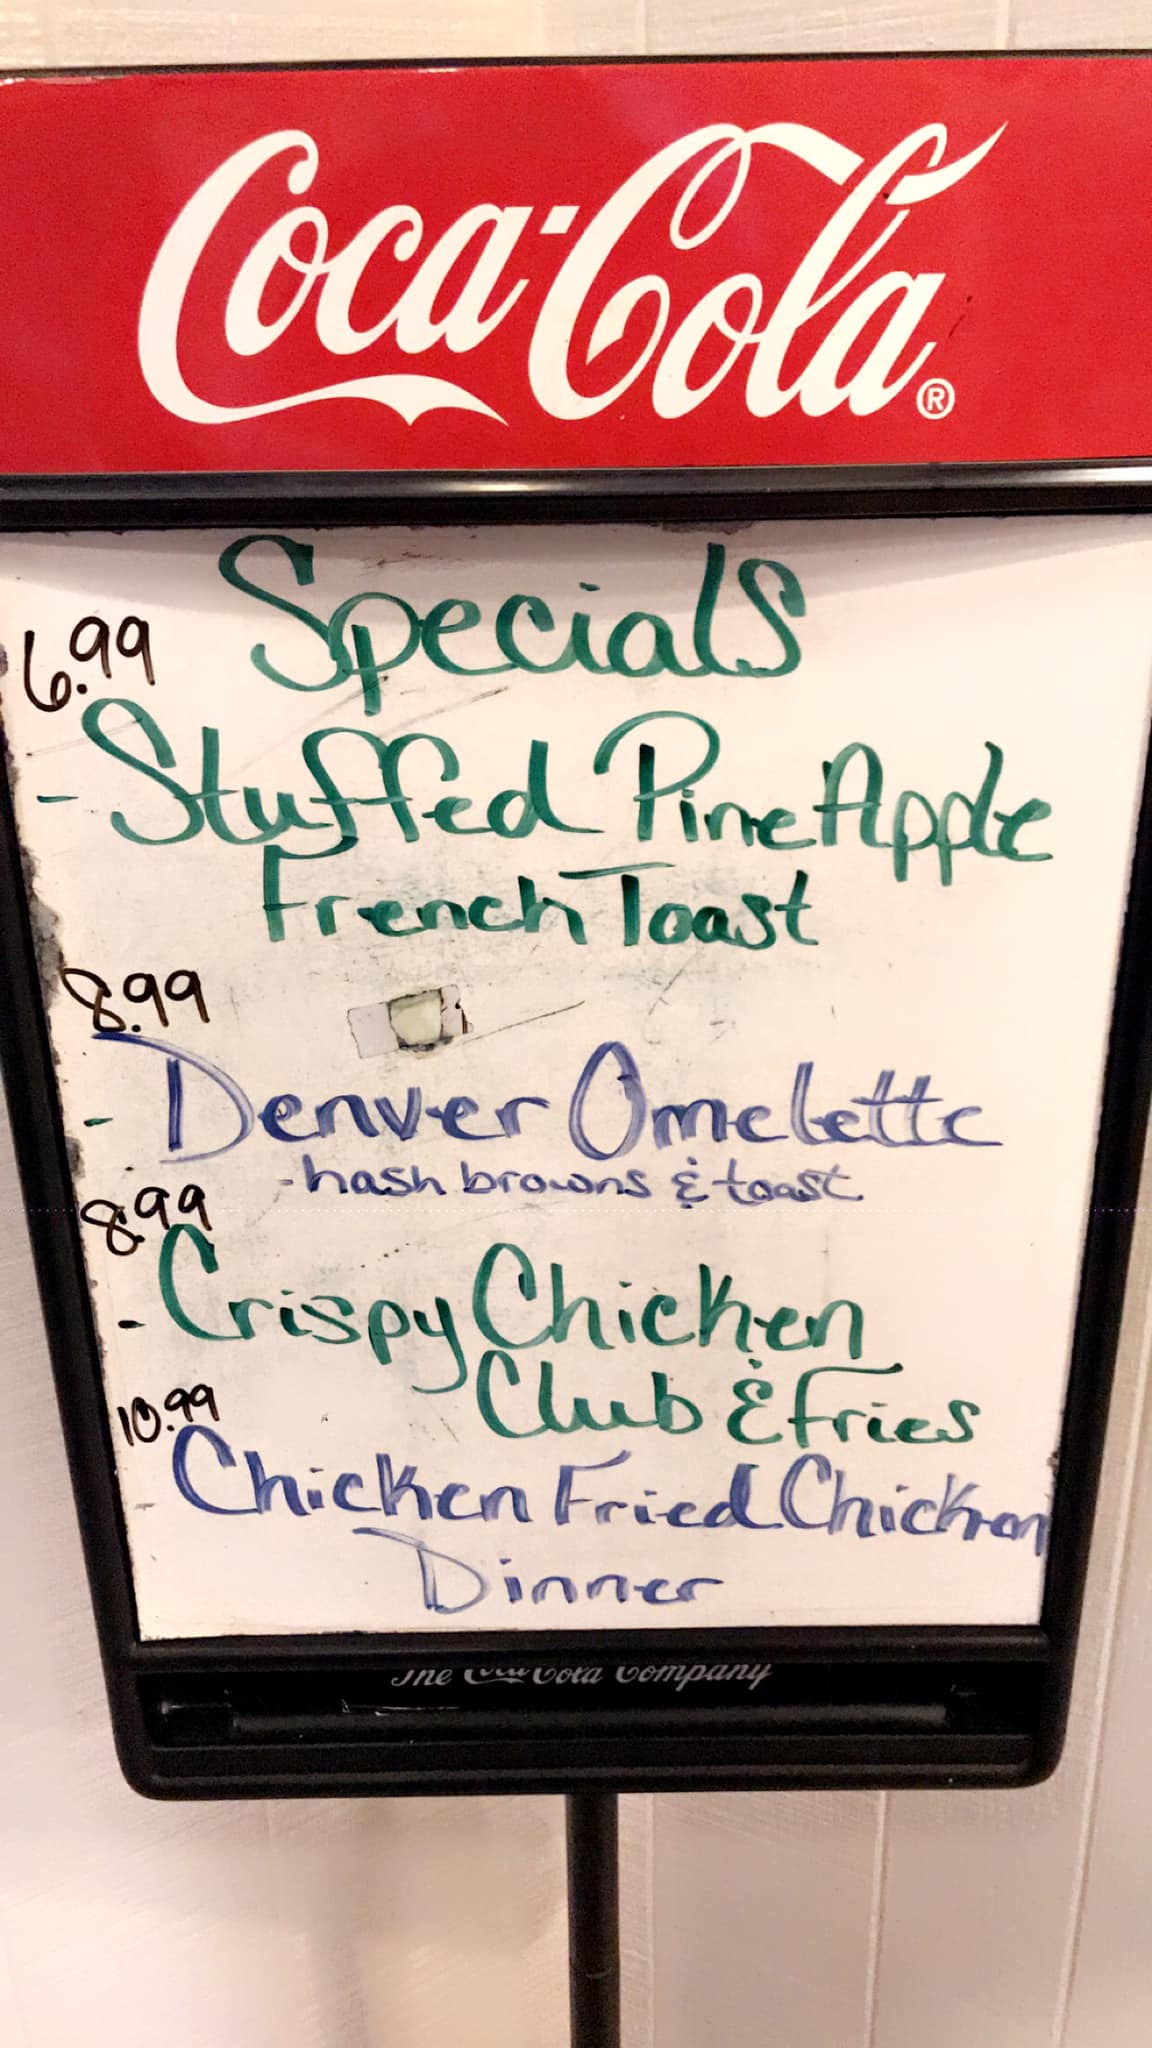 Coca-Cola®
Specials
6.99
- Stuffed PineApple
French Toast
8.99
- Denver Omelette
- hash browns & toast
8.99
- Crispy Chicken
Club & Fries
10.99
- Chicken Fried Chicken
Dinner
The Coca-Cola Company